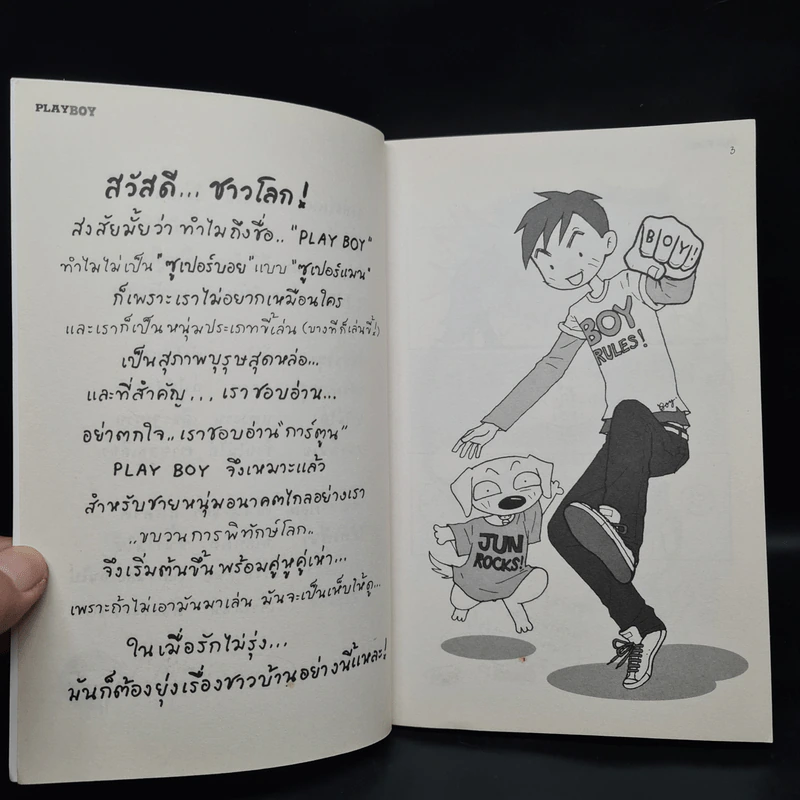 PLAYBOY
สวัสดี... ชาวโลก!
สงสัยมั้ยว่า ทำไมถึงชื่อ.. "PLAY BOY"
ทำไมไม่เป็น "ซูเปอร์บอย" แบบ "ซูเปอร์แมน"
ก็เพราะเราไม่อยากเหมือนใคร
และเราก็เป็นหนุ่มประเภทขี้เล่น (บางทีก็เล่นขี้!)
เป็นสุภาพบุรุษสุดหล่อ...
และที่สำคัญ... เราชอบอ่าน...
อย่าตกใจ.. เราชอบอ่าน "การ์ตูน"
PLAY BOY จึงเหมาะแล้ว
สำหรับชายหนุ่มอนาคตไกลอย่างเรา
..ขบวนการพิทักษ์โลก..
จึงเริ่มต้นขึ้น พร้อมคู่หูคู่เห่า...
เพราะถ้าไม่เอามันมาเล่น มันจะเป็นเห็บให้ดู...
ในเมื่อรักไม่รุ่ง...
มันก็ต้องยุ่งเรื่องชาวบ้านอย่างนี้แหละ!
3
BOY!
BOY
RULES!
JUN
ROCKS!